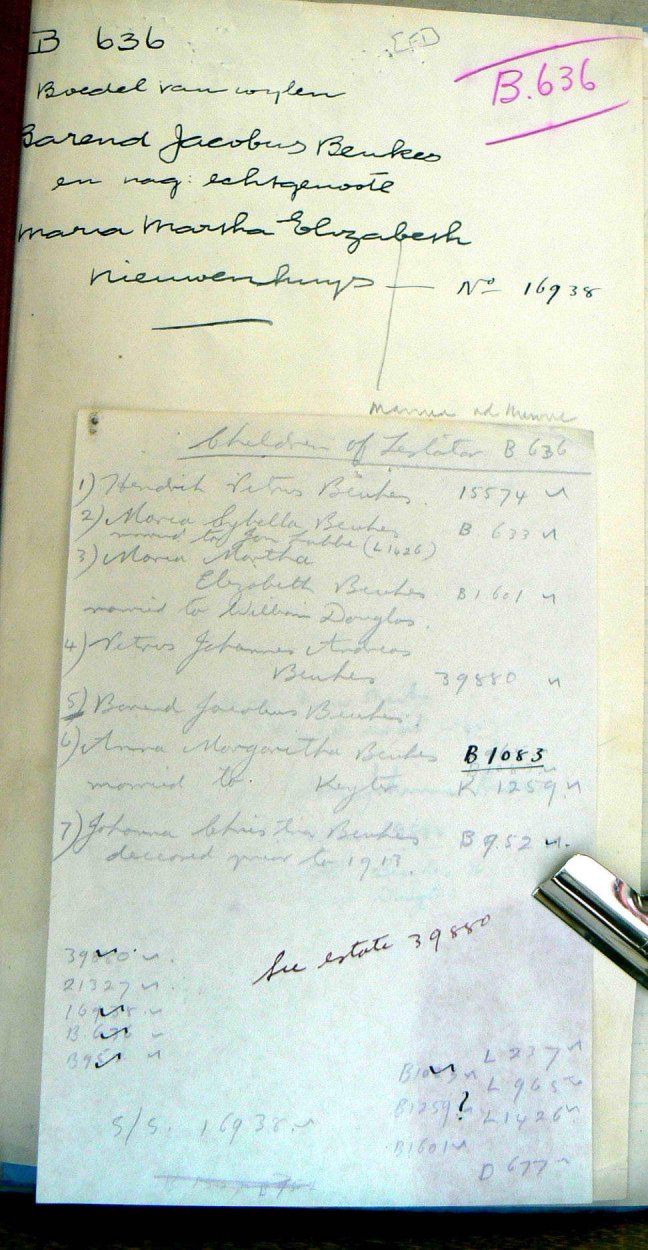 B 636
B.636
Boedel van wylen
Barend Jacobus Beukes
en nag: echtgenoote
Maria Martha Elizabeth
Nieuwenhuys — No 16938
Children of Testator B 636
1) Hendrik Petrus Beukes. 15574
2) Maria Sybella Beukes B. 633
married to Jan Lubbe (L1426)
3) Maria Martha
Elizabeth Beukes B1601
married to William Douglas.
4) Petrus Johannes Andreas
Beukes 39880
5) Barend Jacobus Beukes.
6) Anna Margaretha Beukes B1083
married to: Keyter K 1259
7) Johanna Christina Beukes B952
deceased prior to 1913
See estate 39880
39880
21327
16938
B 636
B952
L 237
B1083 L 965
B1259? L1426
B1601
D 677
S/S. 16938